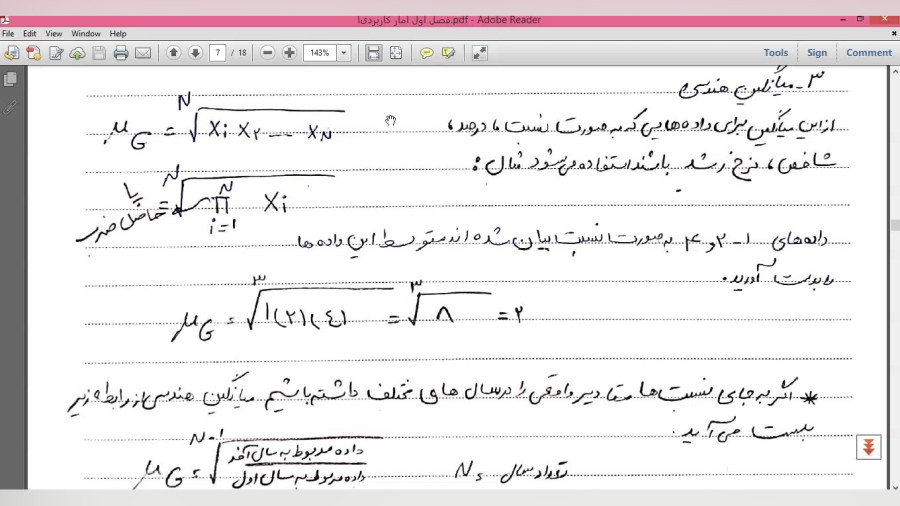 فصل اول امار کاربردی1.pdf - Adobe Reader
File Edit View Window Help
7 / 18 143% Tools Sign Comment
۳- میانگین هندسی
از این میانگین برای داده‌هایی که به صورت نسبت‌ها، درصد،
شاخص، نرخ رشد باشند استفاده می‌شود مثال:
μG = N√(Xi X۲ --- XN)
یا = N√(N Π i=1 Xi)
حاصل ضرب
داده‌های ۱-۲ و ۴ به صورت نسبت بیان شده اند متوسط این داده‌ها
را بدست آورید.
μG = ۳√(۱(۲)(٤)) = ۳√۸ = ۲
* اگر به جای نسبت‌ها مقادیر واقعی را در سال‌های مختلف داشته باشیم میانگین هندسی از رابطه زیر
بدست می‌آید.
μG = N-1√(داده مربوط به سال آخر / داده مربوط به سال اول) N = تعداد سال